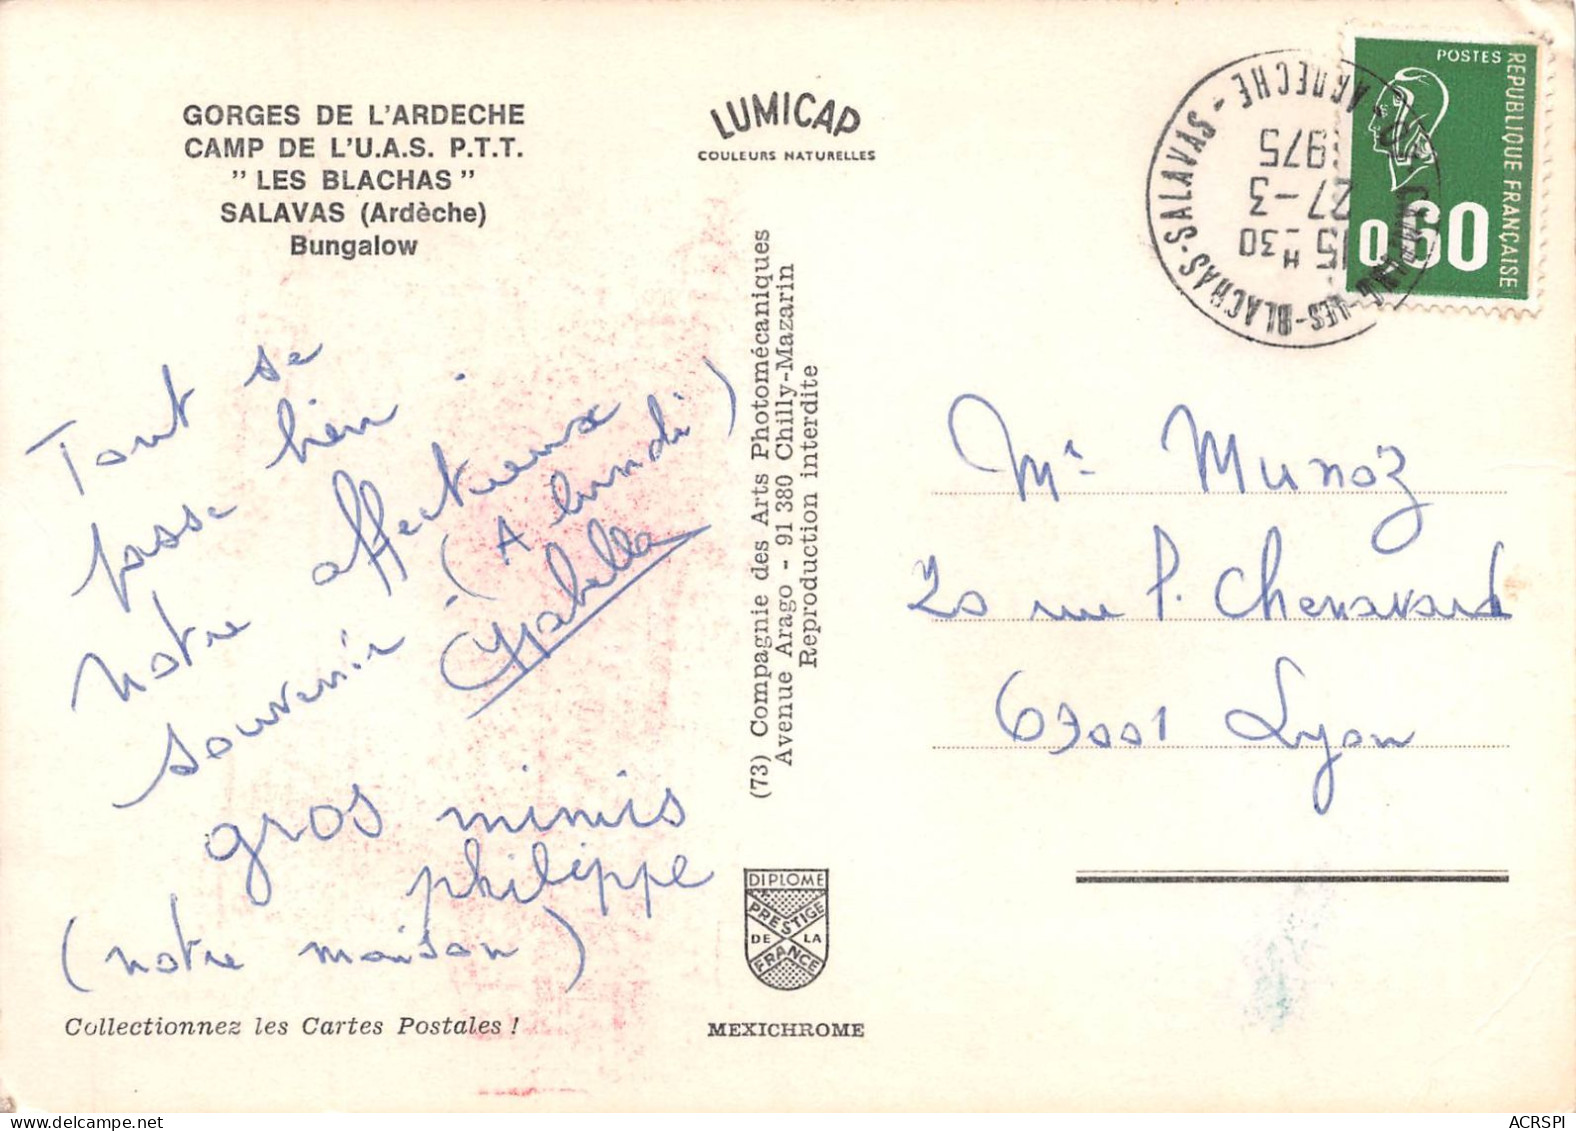 GORGES DE L'ARDECHE
CAMP DE L'U.A.S. P.T.T.
"LES BLACHAS"
SALAVAS (Ardèche)
Bungalow
LUMICAP
COULEURS NATURELLES
POSTES
REPUBLIQUE FRANÇAISE
0.60
LES-BLACHAS-SALAVAS - ARDECHE
15 H 30
27-3
1975
Tout se
passe bien.
Notre affectueux
souvenir. (A lundi)
gros mimis
philippe
(notre maison)
Collectionnez les Cartes Postales !
(73) Compagnie des Arts Photomécaniques
Avenue Arago - 91 380 Chilly-Mazarin
Reproduction interdite
DIPLOME
PRESTIGE
DE LA
FRANCE
MEXICHROME
Mr Munoz
20 rue P. Chenavard
69001 Lyon
ACRSPI